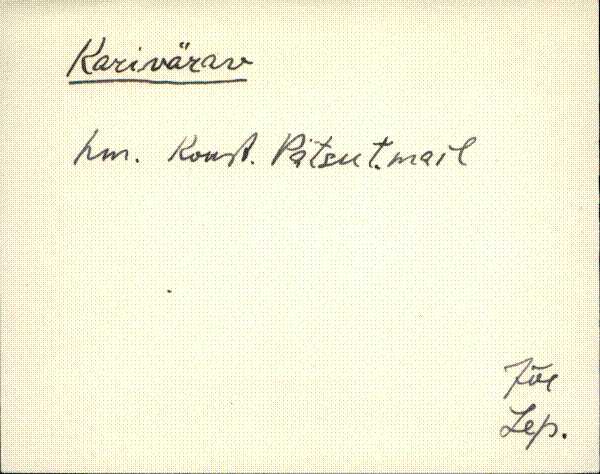 Karivärav
hm. Konst. Pätsu t. mail
Jõe
Lep.